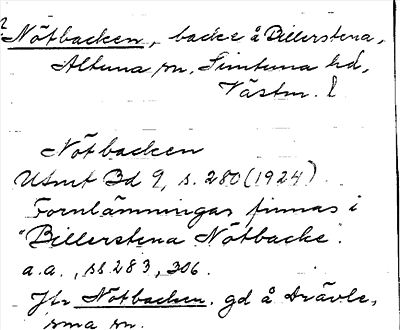 ? Nötbacken, backe å Billerstena,
Altuna sn, Simtuna hd,
Västm. l
Nötbacken
Utsut Bd 9, s. 280 (1924)
Fornlämningar finnas i
"Billerstena Nötbacke".
a.a., ss 283, 306.
Jfr Nötbacken. gd å Drävle,
sma sn.